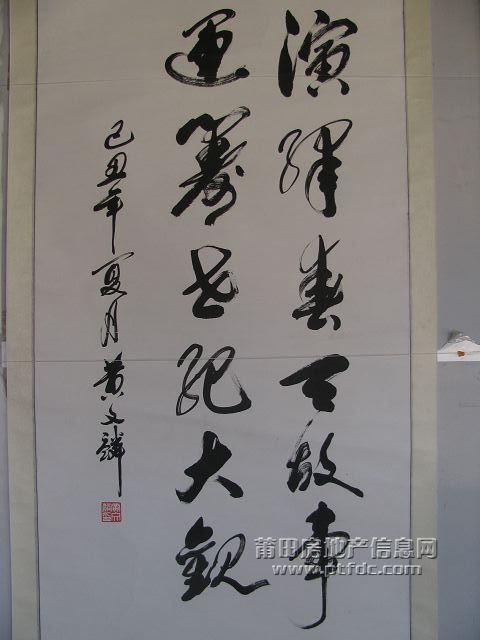 演绎春天故事
运筹世纪大观
己丑年夏月黄文麟
莆田房地产信息网
www.ptfdc.com